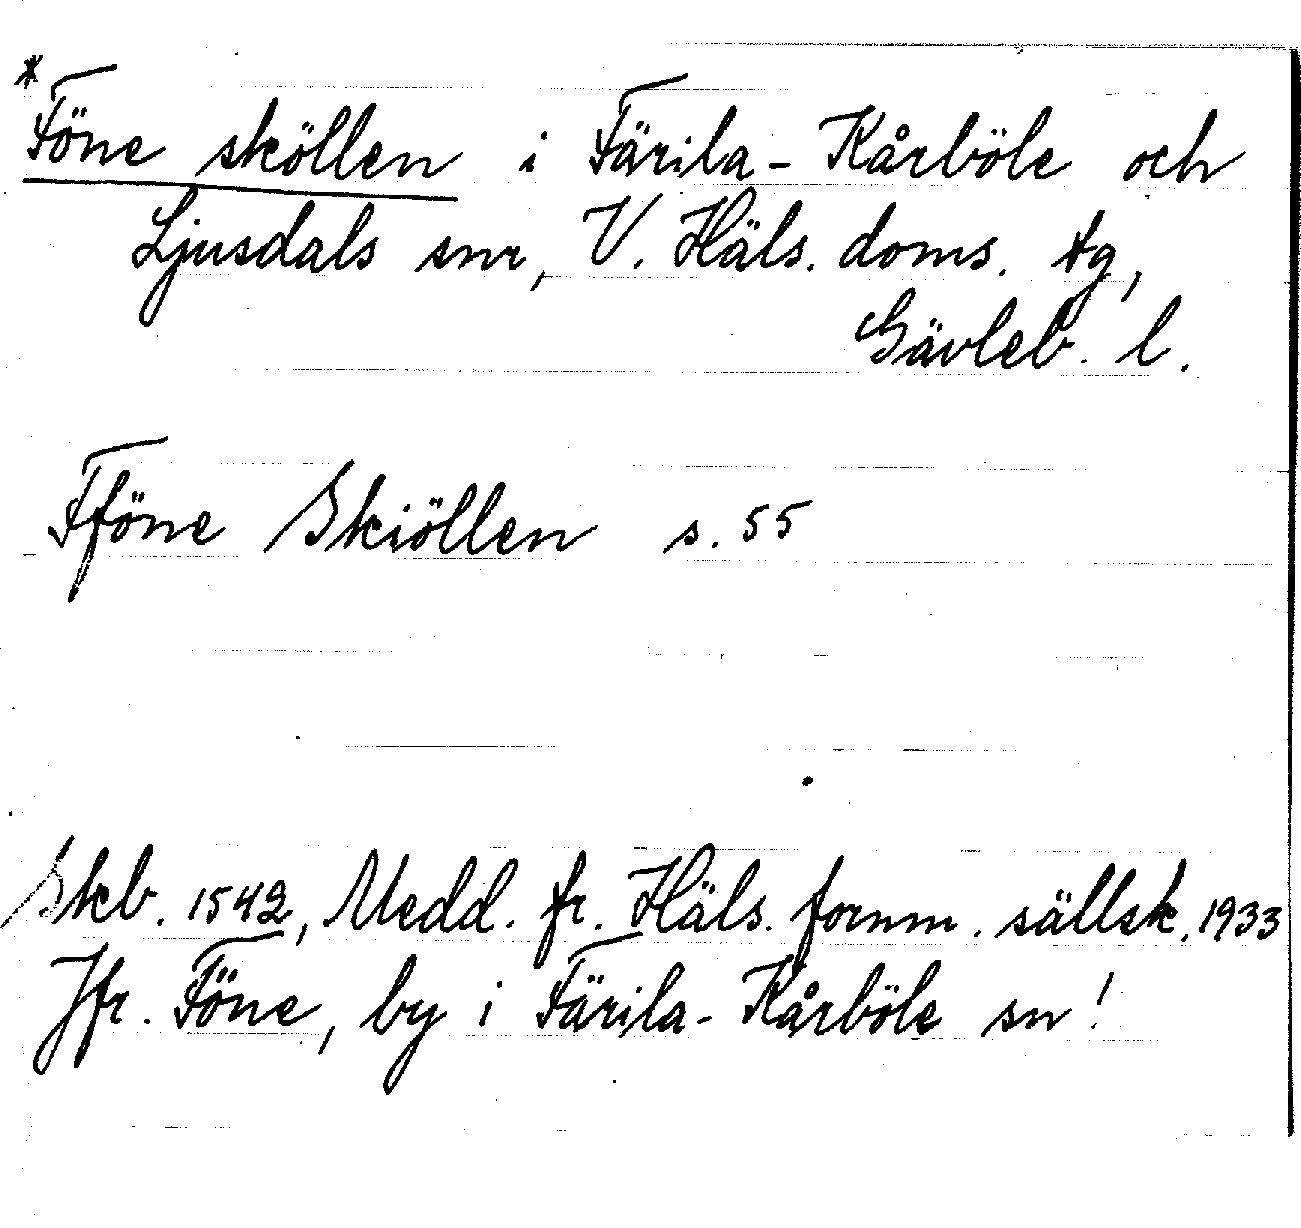 * Föne sköllen i Färila-Kårböle och
Ljusdals snr, V. Häls. doms. tg,
Gävleb. l.
Fföne Skiöllen s. 55
Skb. 1542, Medd. fr. Häls. fornm. sällsk. 1933
Jfr. Föne, by i Färila-Kårböle sn!